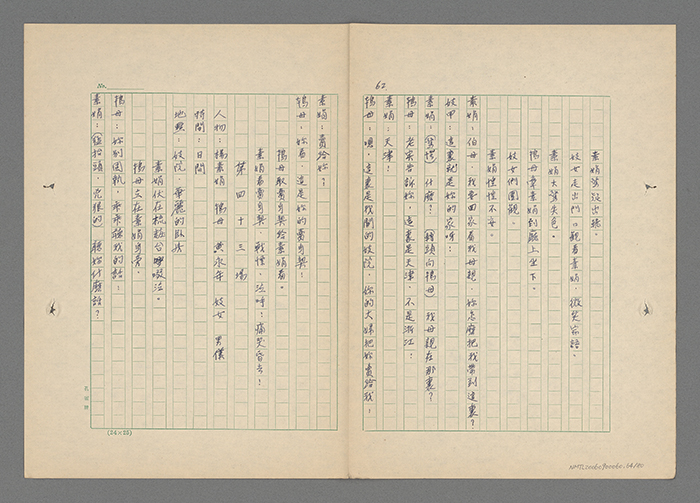 62
素娟驚汗出魂。
妓女走出門口觀看素娟，微笑案語。
素娟大驚失色。
鴇母牽素娟到廳上坐下。
妓女們圍觀。
素娟惶惶不安。
素娟：伯母，我要回家看我母親，你怎麼把我帶到這裏？
妓甲：這裏就是妳的家呀！
素娟：（驚愕）什麼？（轉頭向鴇母）我母親在那裏？
鴇母：老實告訴妳，這裏是天津，不是浙江！
素娟：天津！
鴇母：嗯，這裏是我開的妓院，你的大娘把妳賣給我！
No.
素娟：賣給妳？！
鴇母：妳看，這是妳的賣身契！
鴇母取賣身契給素娟看。
素娟看賣身契，戰慄，泣呼！痛哭昏去！
第四十三場
人物：楊素娟 鴇母 黃永年 妓女 男僕
時間：日間
地點：妓院，華麗的臥房
素娟伏在梳粧台啜泣。
鴇母立在素娟身旁。
鴇母：妳別固執，乖乖聽我的話！
素娟：（抬頭，兇狠的）聽妳什麼話？
(24×25)
NMTL20060900060.64/80